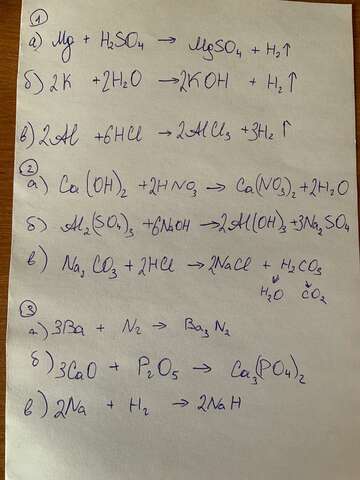 1
а) Mg + H₂SO₄ → MgSO₄ + H₂↑
б) 2K + 2H₂O → 2KOH + H₂↑
в) 2Al + 6HCl → 2AlCl₃ + 3H₂↑
2
а) Ca(OH)₂ + 2HNO₃ → Ca(NO₃)₂ + 2H₂O
б) Al₂(SO₄)₃ + 6NaOH → 2Al(OH)₃ + 3Na₂SO₄
в) Na₂CO₃ + 2HCl → 2NaCl + H₂CO₃
H₂O CO₂
3
а) 3Ba + N₂ → Ba₃N₂
б) 3CaO + P₂O₅ → Ca₃(PO₄)₂
в) 2Na + H₂ → 2NaH